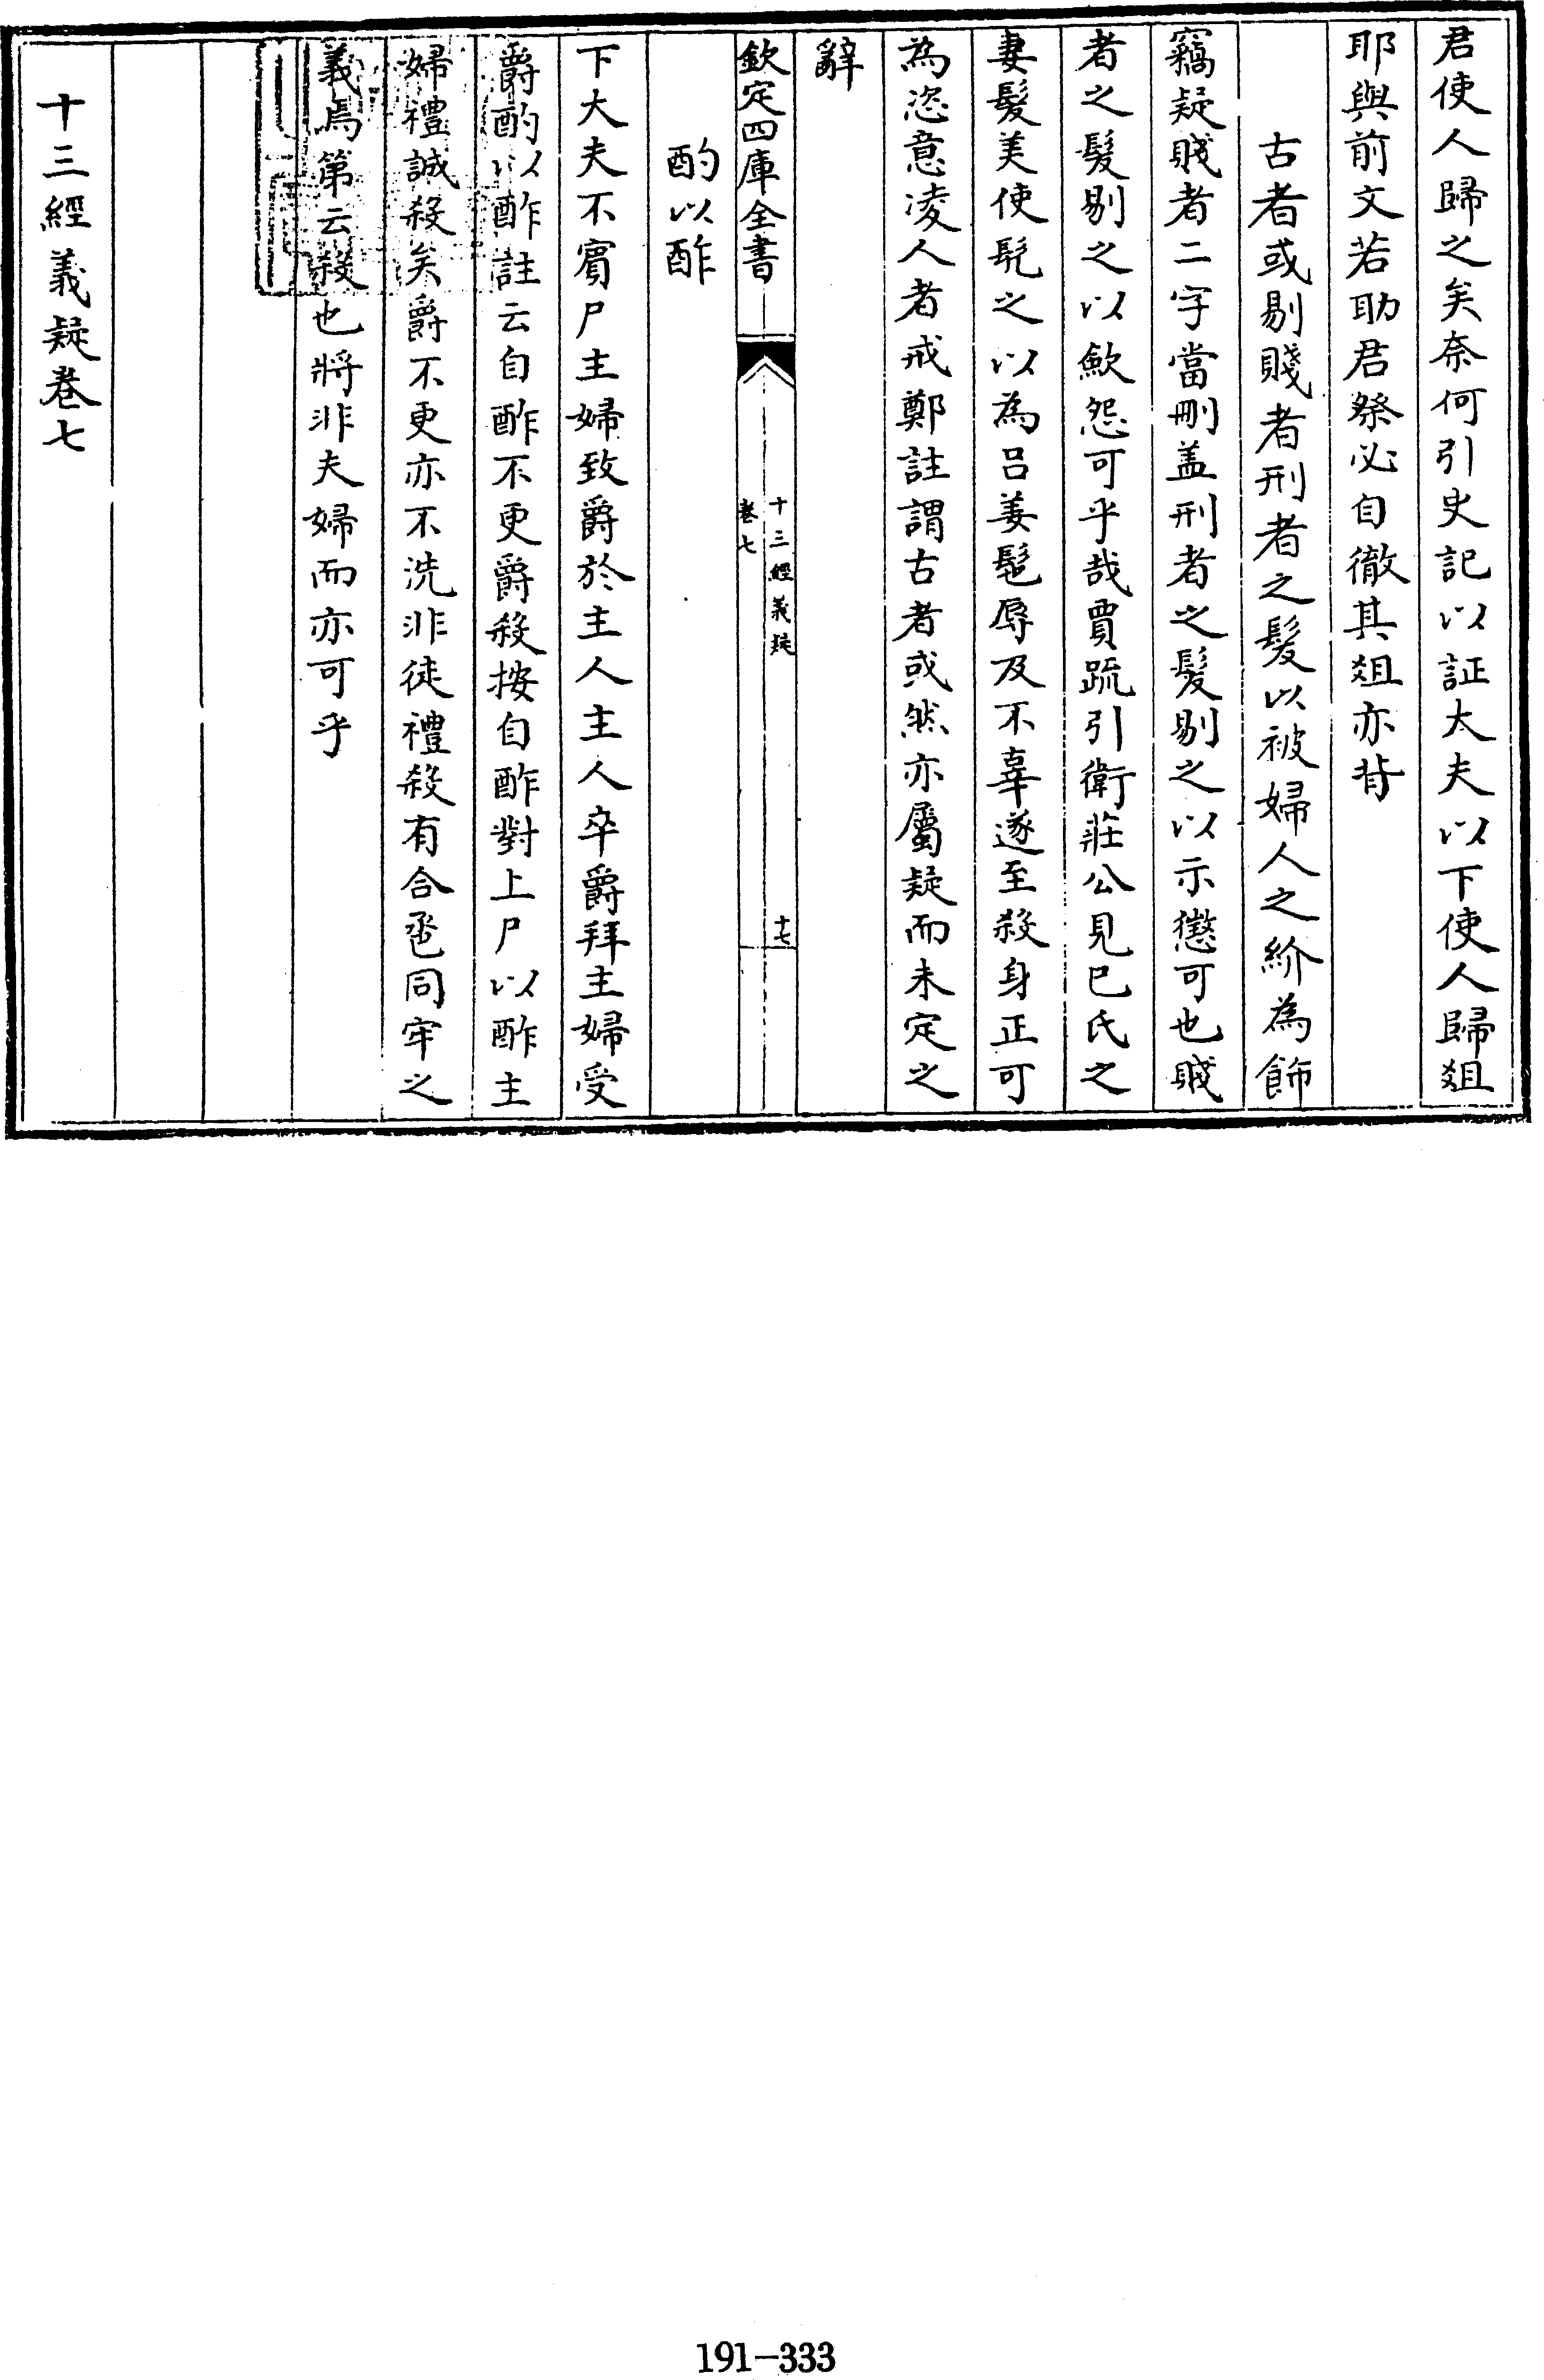 君使人歸之矣奈何引史記以証大夫以下使人歸俎
耶與前文若助君祭必自徹其俎亦背
古者或剔賤者刑者之髮以被婦人之紒為飾
竊疑賤者二字當刪盖刑者之髮剔之以示懲可也賤
者之髮剔之以歛怨可乎哉賈疏引衛莊公見巳氏之
妻髮美使髠之以為呂姜髢辱及不辜遂至殺身正可
為恣意凌人者戒鄭註謂古者或然亦屬疑而未定之
辭
欽定四庫全書
十三經義疑
卷七
十七
酌以酢
下大夫不賓尸主婦致爵於主人主人卒爵拜主婦受
爵酌以酢註云自酢不更爵殺按自酢對上尸以酢主
婦禮誠殺矣爵不更亦不洗非徒禮殺有合巹同牢之
義焉第云殺也將非夫婦而亦可乎
十三經義疑卷七
191-333